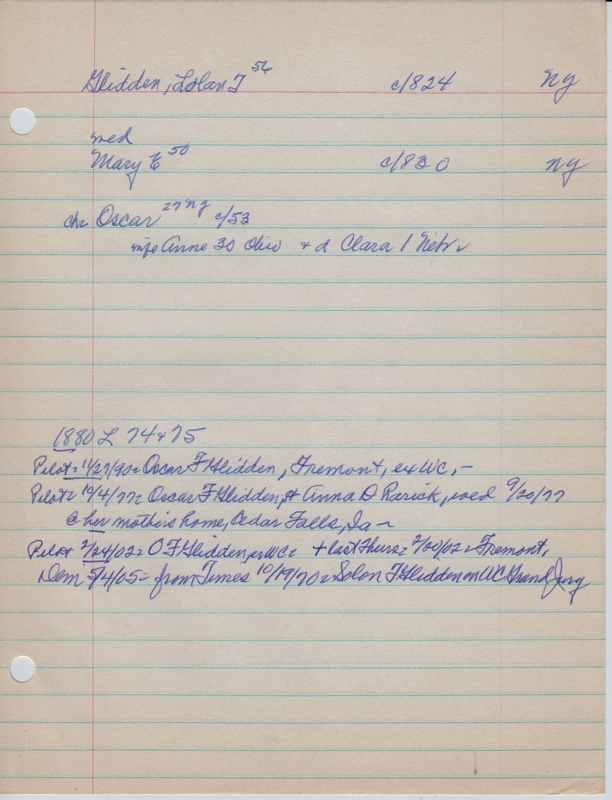 Glidden, Solon F 56 c/824 NY
wed
Mary E 50 c/830 NY
ch= Oscar 27 NY c/53
wife Anne 30 Ohio + d Clara 1 Nebr
1880 L 74+75
Pilot= 11/27/90= Oscar F Glidden, Fremont, ex WC,-
Pilot= 10/4/77= Oscar F Glidden, + Anna D Rarick, wed 9/20/77
@ her mother's home, Cedar Falls, Ia -
Pilot 2/24/02= O F Glidden, exWC= + last Thurs= 2/20/02= Fremont,
Dem 5/4/05= from Times 10/19/70= Solon F Glidden on WC Grand Jury